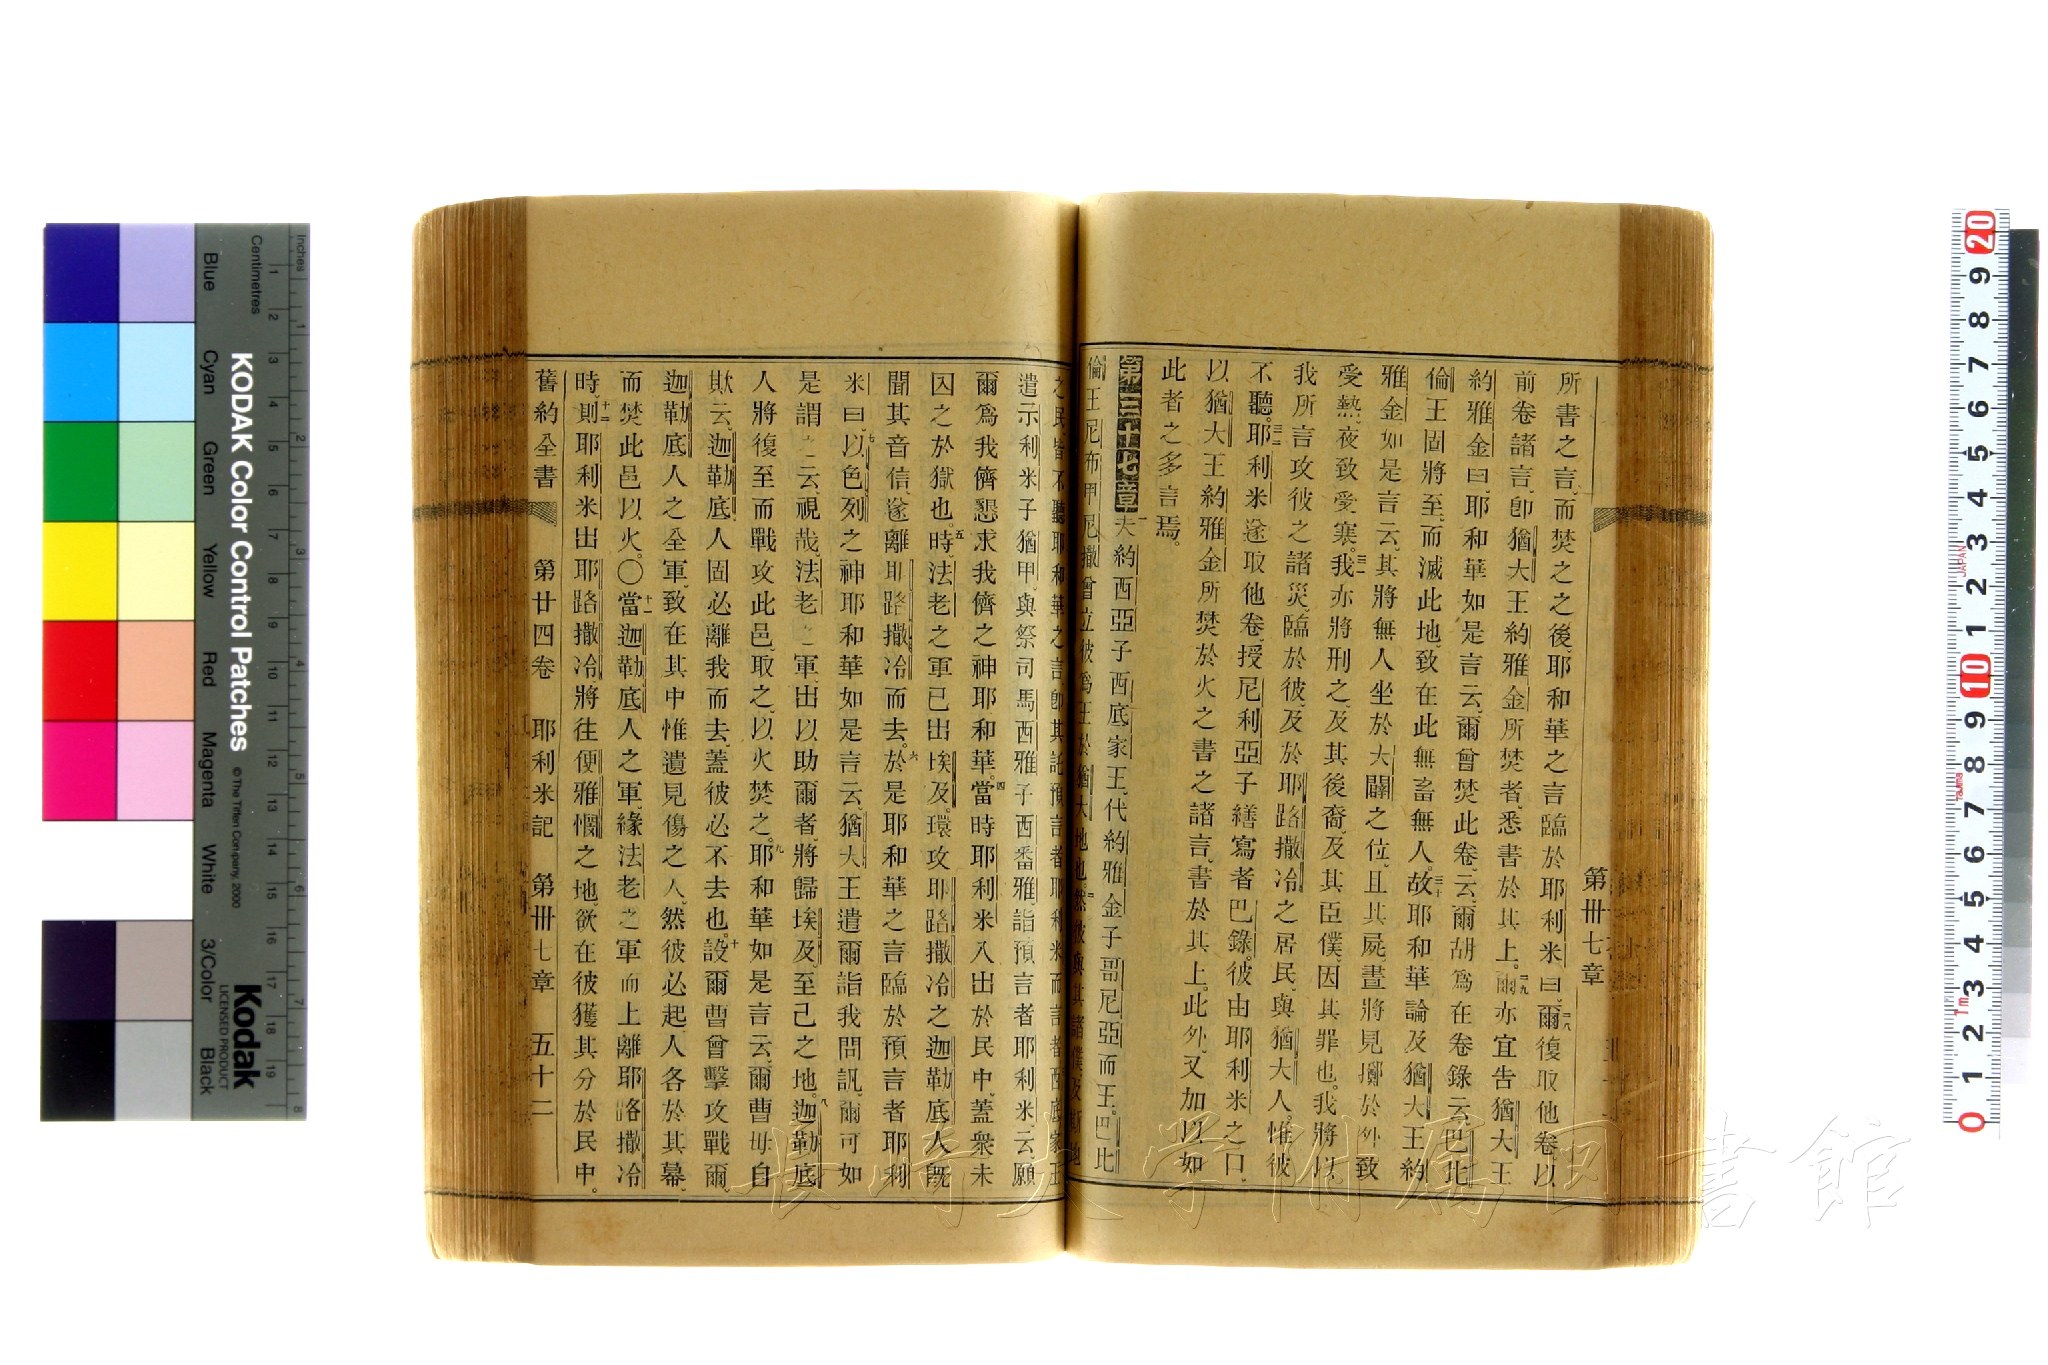 第卅七章
所書之言、而焚之之後、耶和華之言臨於耶利米曰、爾復取他卷、以
前卷諸言、卽猶大王約雅金所焚者、悉書於其上。爾亦宜吿猶大王
約雅金曰、耶和華如是言云、爾曾焚此卷、云、爾胡爲在卷錄云、巴比
倫王固將至、而滅此地、致在此無畜無人。故耶和華論及猶大王約
雅金如是言云、其將無人坐於大闢之位、且其屍、晝將見擲於外、致
受熱、夜致受寒。我亦將刑之、及其後裔、及其臣僕、因其罪也、我將以
我所言攻彼之諸災、臨於彼、及於耶路撒冷之居民、與猶大人、惟彼
不聽。耶利米遂取他卷、授尼利亞子繕寫者巴錄、彼由耶利米之口、
以猶大王約雅金所焚於火之書之諸言、書於其上、此外、又加以如
此者之多言焉。
第三十七章 夫約西亞子西底家王、代約雅金子哥尼亞而王、巴比
倫王尼布甲尼撒曾立彼爲王於猶大地也。然彼與其諸僕及斯地
之民、皆不聽耶和華之言、卽其託預言者耶利米而言者。西底家王
遣示利米子猶甲、與祭司馬西雅子西番雅、詣預言者耶利米、云、願
爾爲我儕懇求我儕之神耶和華。當時耶利米入出於民中、蓋衆未
囚之於獄也。時、法老之軍已出埃及、環攻耶路撒冷之迦勒底人旣
聞其音信、遂離耶路撒冷而去。於是耶和華之言臨於預言者耶利
米曰、以色列之神耶和華如是言云、猶大王遣爾詣我問訊、爾可如
是謂之云、視哉、法老之軍、出以助爾者、將歸埃及、至己之地。迦勒底
人將復至而戰攻此邑、取之、以火焚之。耶和華如是言云、爾曹毋自
欺云、迦勒底人固必離我而去、蓋彼必不去也。設爾曹曾擊攻戰爾
迦勒底人之全軍、致在其中惟遺見傷之人、然彼必起、人各於其幕、
而焚此邑以火。〇當迦勒底人之軍、緣法老之軍而上離耶路撒冷
時、則耶利米出耶路撒冷將往便雅憫之地、欲在彼獲其分於民中。
舊約全書 第廿四卷 耶利米記 第卅七章 五十二
KODAK Color Control Patches
©The Tiffen Company, 2000
Kodak
LICENSED PRODUCT
Inches
Centimetres
Blue
Cyan
Green
Yellow
Red
Magenta
White
3/Color
Black
長崎大学附属図書館